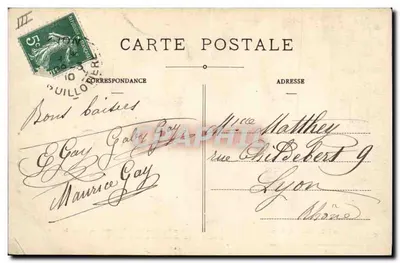 III
5c
CARTE POSTALE
CORRESPONDANCE
ADRESSE
Bons baisers
E Gay Gaby Gay
Maurice Gay
Mlle Matthey
rue Childebert 9
Lyon
Rhône